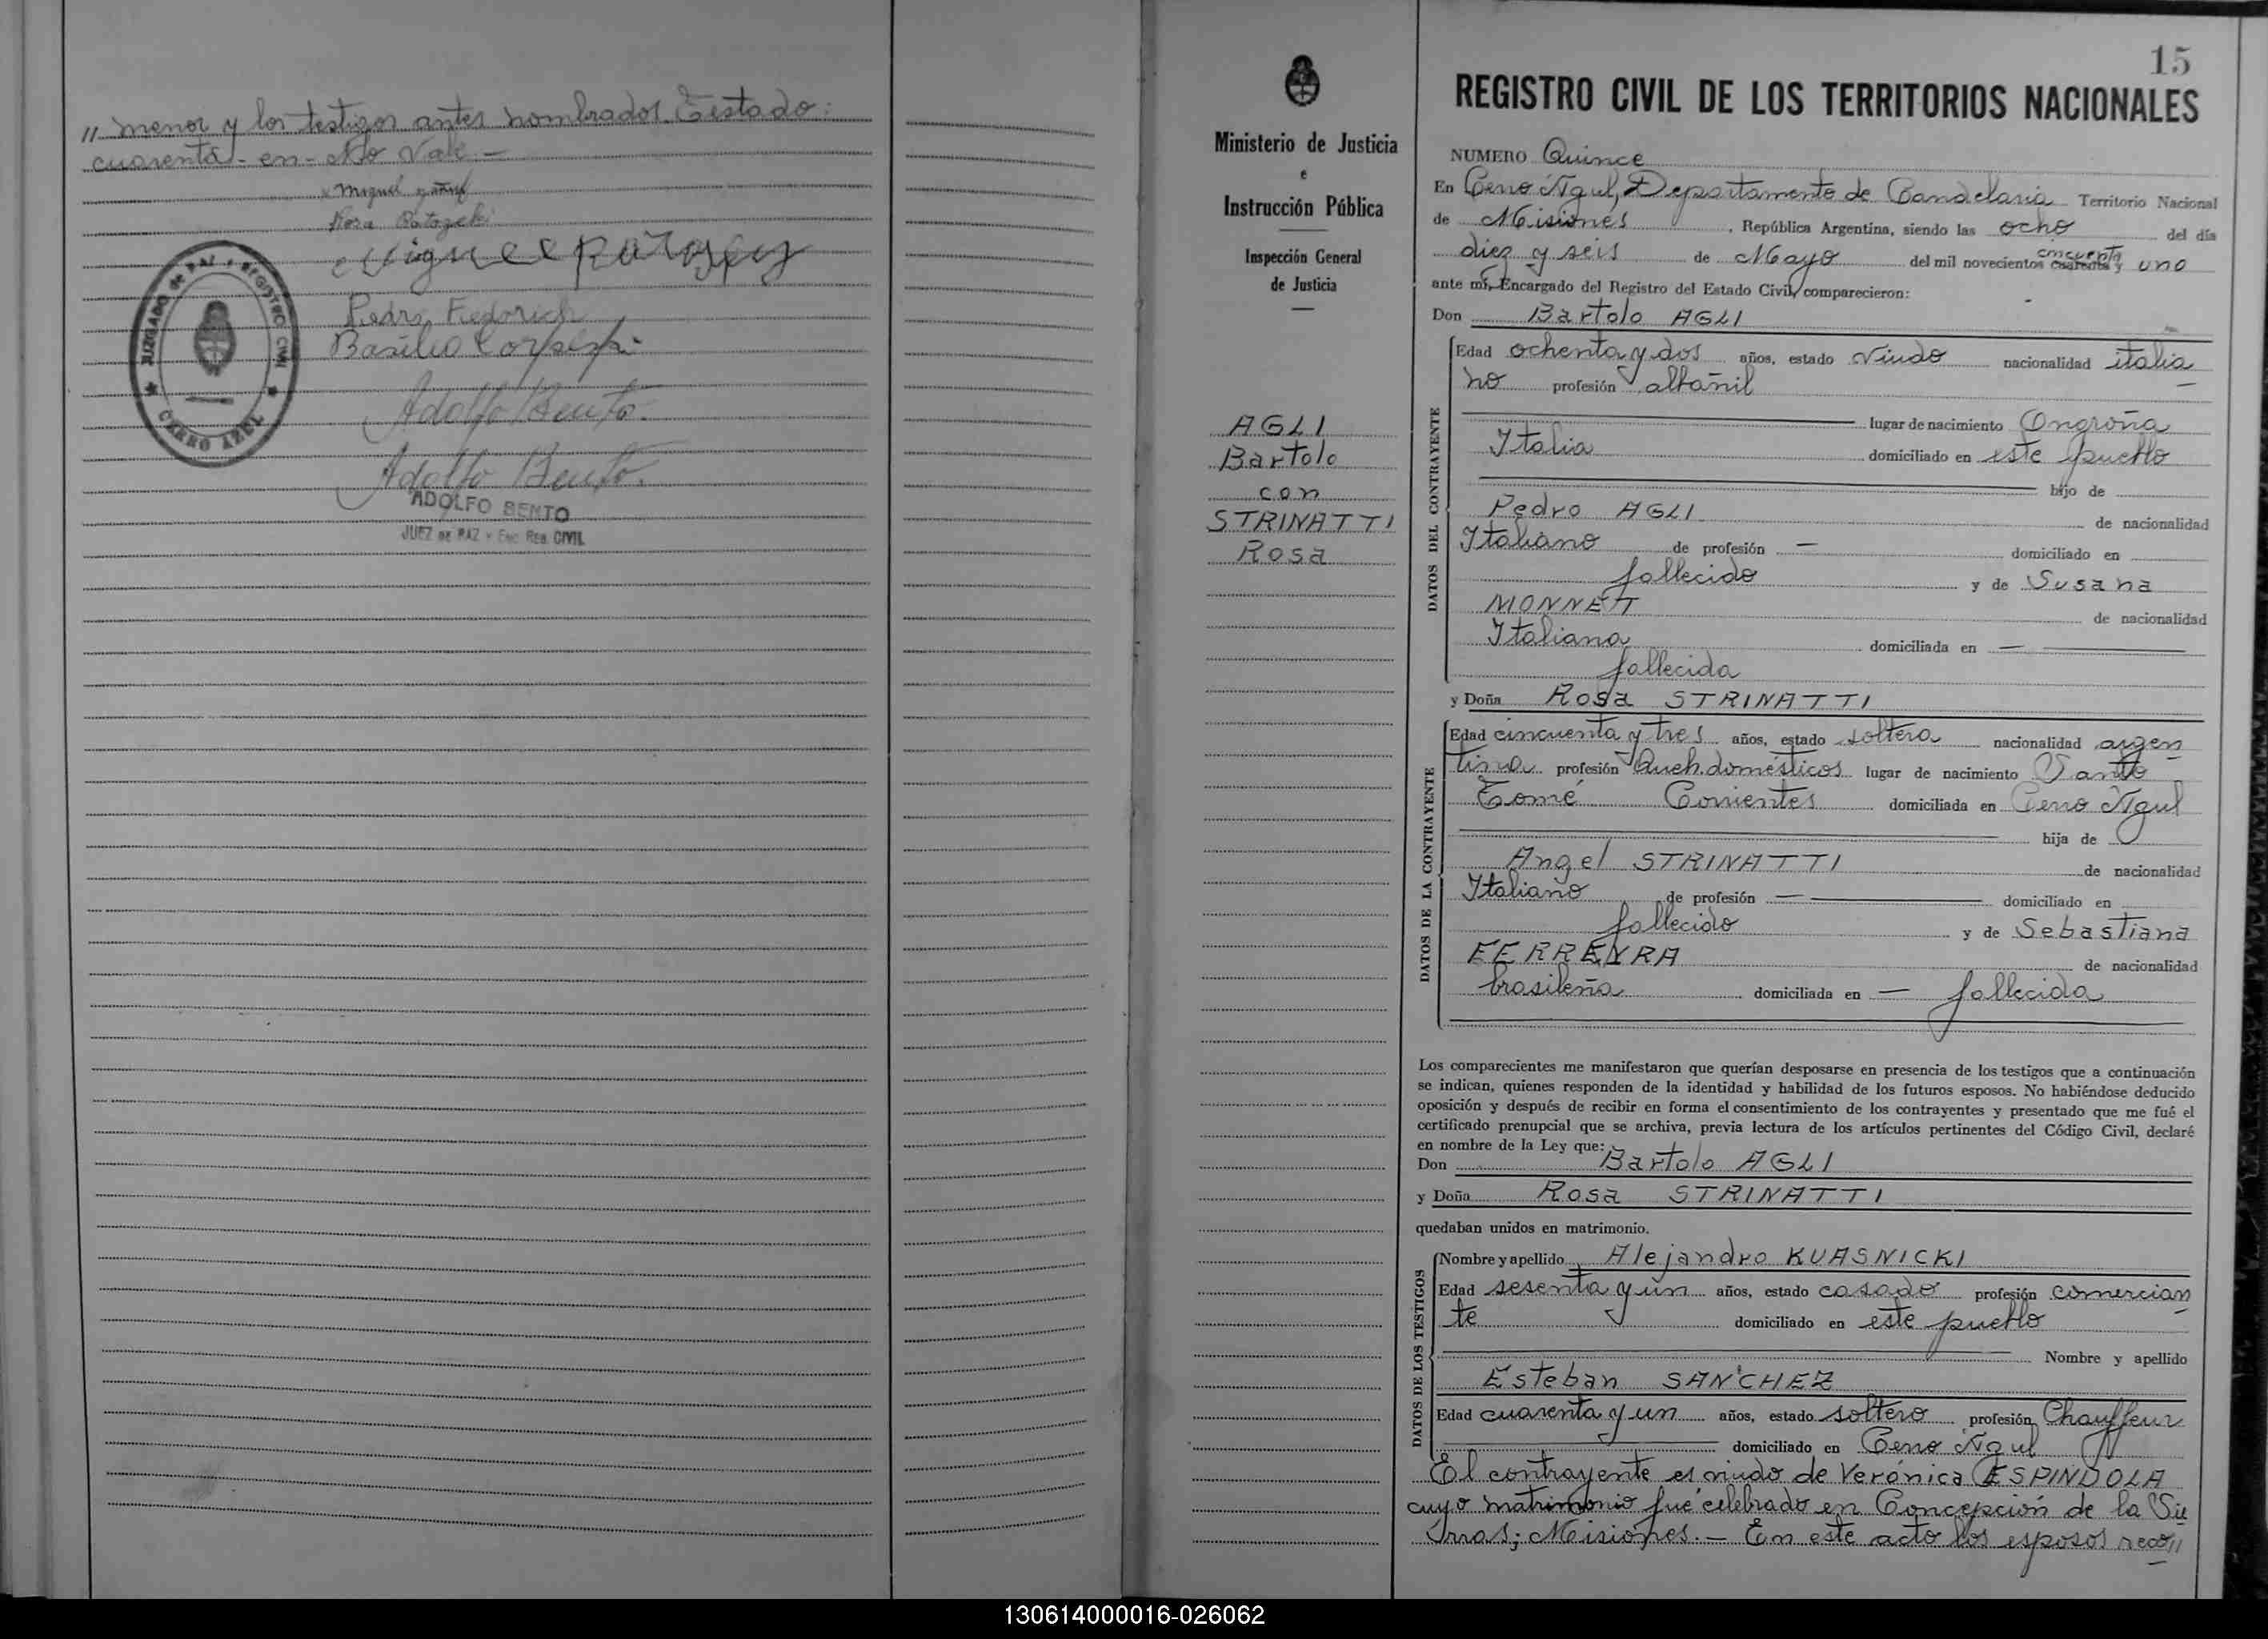 " menor y los testigos antes nombrados. Testado:
cuarenta - en - No Vale. -
Miguel
Rosa
Pedro Fedorich
Basilio
Adolfo Bento.
Adolfo Bento.
ADOLFO BENTO
JUEZ DE PAZ Y ENC. REG. CIVIL
JUZGADO DE PAZ Y REGISTRO CIVIL
CERRO AZUL
15
Ministerio de Justicia
e
Instrucción Pública
Inspección General
de Justicia
AGLI
Bartolo
con
STRINATTI
Rosa
REGISTRO CIVIL DE LOS TERRITORIOS NACIONALES
NUMERO Quince
En Cerro Azul, Departamento de Candelaria Territorio Nacional
de Misiones, República Argentina, siendo las ocho del día
diez y seis de Mayo del mil novecientos cuarenta cincuenta y uno
ante mí, Encargado del Registro del Estado Civil, comparecieron:
Don Bartolo AGLI
DATOS DEL CONTRAYENTE
Edad ochenta y dos años, estado viudo nacionalidad italia
no profesión albañil
lugar de nacimiento Ongroña
Italia domiciliado en este pueblo
hijo de
Pedro AGLI de nacionalidad
Italiano de profesión — domiciliado en
fallecido y de Susana
MONNETT de nacionalidad
Italiana domiciliada en —
fallecida
y Doña Rosa STRINATTI
DATOS DE LA CONTRAYENTE
Edad cincuenta y tres años, estado soltera nacionalidad argen
tina profesión Queh. domésticos lugar de nacimiento Santo
Tomé Corrientes domiciliada en Cerro Azul
hija de
Angel STRINATTI de nacionalidad
Italiano de profesión — domiciliado en
fallecido y de Sebastiana
FERREYRA de nacionalidad
brasileña domiciliada en — fallecida
Los comparecientes me manifestaron que querían desposarse en presencia de los testigos que a continuación
se indican, quienes responden de la identidad y habilidad de los futuros esposos. No habiéndose deducido
oposición y después de recibir en forma el consentimiento de los contrayentes y presentado que me fué el
certificado prenupcial que se archiva, previa lectura de los artículos pertinentes del Código Civil, declaré
en nombre de la Ley que:
Don Bartolo AGLI
y Doña Rosa STRINATTI
quedaban unidos en matrimonio.
DATOS DE LOS TESTIGOS
Nombre y apellido Alejandro KUASNICKI
Edad sesenta y un años, estado casado profesión comercian
te domiciliado en este pueblo
Nombre y apellido
Esteban SANCHEZ
Edad cuarenta y un años, estado soltero profesión Chauffeur
domiciliado en Cerro Azul
El contrayente es viudo de Verónica ESPINDOLA
cuyo matrimonio fue celebrado en Concepción de la Si
erras; Misiones. — En este acto los esposos reco"
130614000016-026062